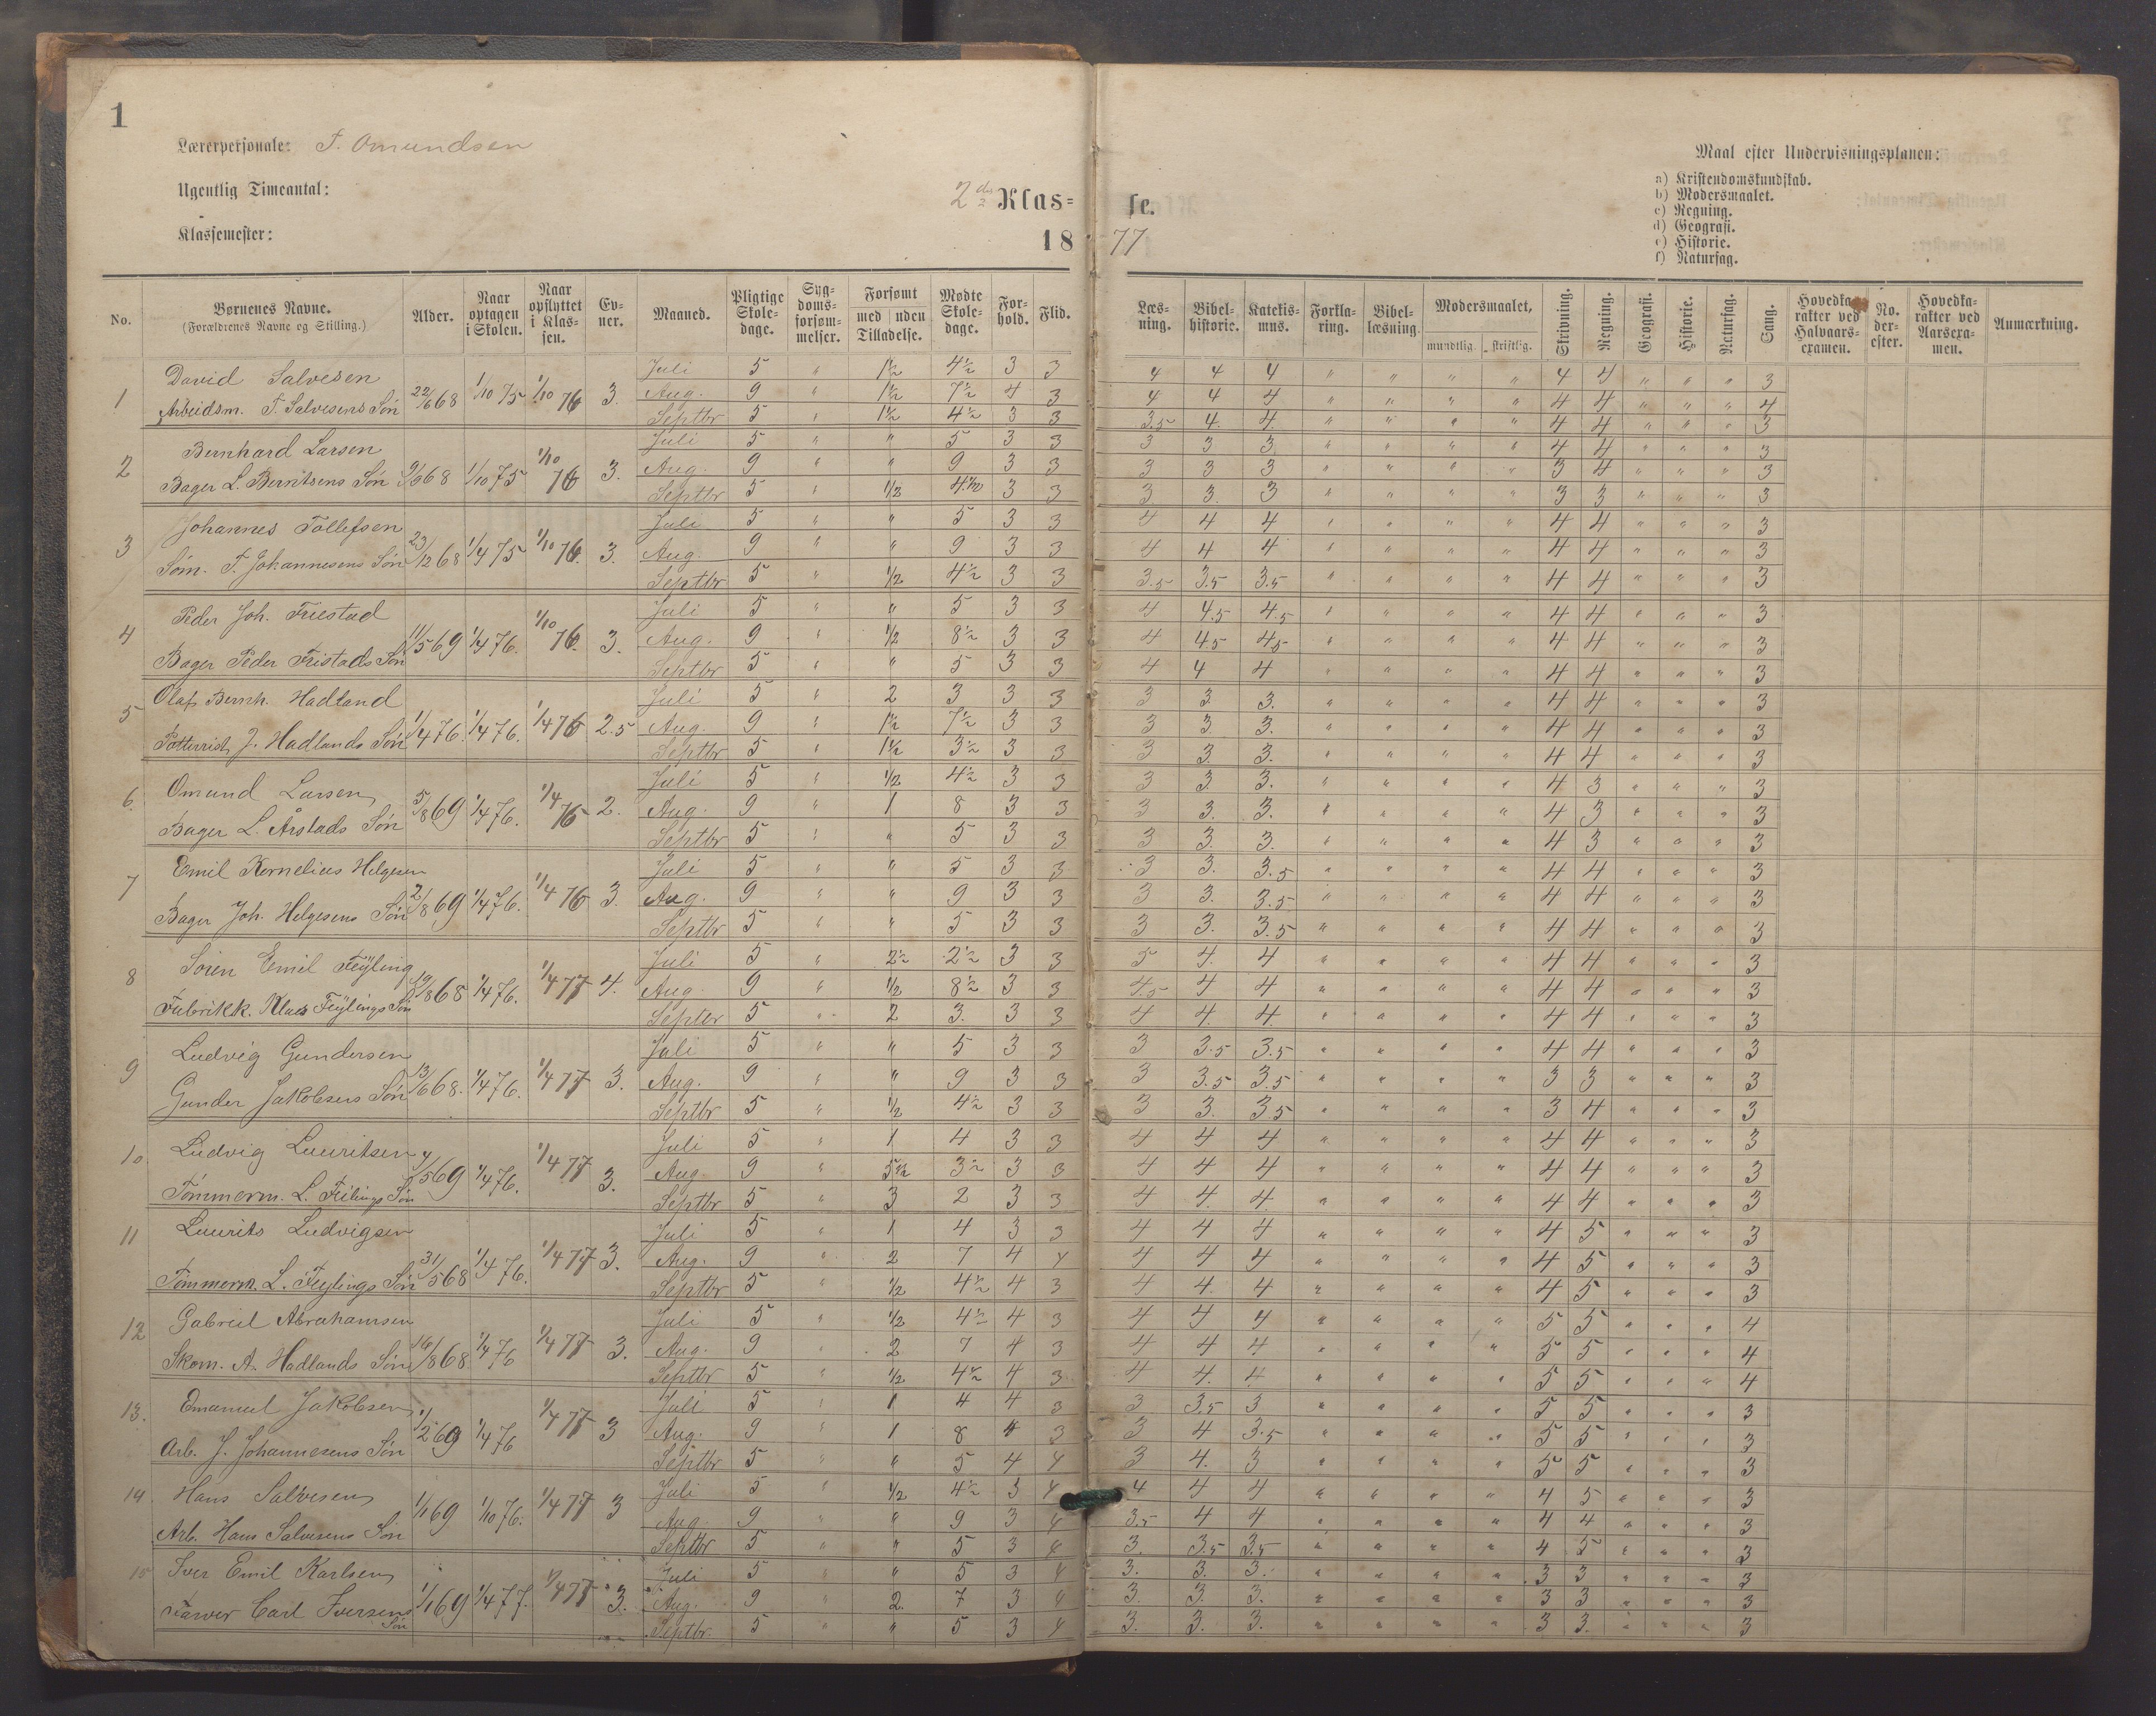 1
Lærerpersonale: T. Omundsen
Ugentlig Timeantal:
2den Klas= se.
Klassemester:
18 77
Maal efter Undervisningsplanen:
a) Kristendomskundskab.
b) Modersmaalet.
c) Regning.
d) Geografi.
e) Historie.
f) Naturfag.
No. Børnenes Navne. (Forældrenes Navne og Stilling.) Alder. Naar optagen i Skolen. Naar opflyttet i Klas- sen. Ev- ner. Maaned. Pligtige Skole- dage. Syg- doms- forsøm- melser. Forsømt med uden Tilladelse. Mødte Skole- dage. For- hold. Flid. Læs- ning. Bibel- historie. Katekis- mus. Forkla- ring. Bibel- læsning. Modersmaalet, mundtlig. skriftlig. Skrivning. Regning. Geografi. Historie. Naturfag. Sang. Hovedka- rakter ved Halvaars- examen. No. der- efter. Hovedka- rakter ved Aarsexa- men. Anmærkning.
1 David Salvesen Juli 5 " 1½ 4½ 3 3 4 4 4 " " " " 4 4 " " " 3
Arbeidsm. T. Salvesens Søn 22/6 68 1/10 75 1/10 76 3. Aug. 9 " 1½ 7½ 4 3 4 4 4 " " " " 4 4 " " " 4
Septbr 5 " 1½ 4½ 3 3 3.5 4. 4. " " " " 4 4 " " " 3
2 Bernhard Larsen Juli 5 " " 5 3 3 3 3 3 " " " " 4 4 " " " 3
Bager L. Berntsens Søn 9/6 68 1/10 75 1/10 76 3. Aug. 9 " " 9 3 3 3 3 3 " " " " 3 4 " " " 3
Septbr 5 " 1/2 4.1/2 3 3 3. 3. 3 " " " " 3 3 " " " 3
3 Johannes Tollefsen Juli 5 " " 5 3 3 4 4 4 " " " " 4 4 " " " 3
Søm. T. Johannesens Søn 23/12 68 1/4 75 1/10 76. 3. Aug. 9 " " 9 3 3 4 4 4 " " " " 4 4 " " " 3
Septbr 5 " 1/2 4½ 3 3 3.5 3.5 3.5 " " " " 4 4 " " " 3
4 Peder Joh. Friestad Juli 5 " " 5 3 3 4 4.5 4.5 " " " " 4 4 " " " 3
Bager Peder Fristads Søn 11/5 69 1/4 76. 1/10 76. 3. Aug. 9 " 1/2 8½ 3 3 4 4.5 4.5 " " " " 4 4 " " " 3
Septbr 5 " " 5 3 3 4 4 4 " " " " 4 4 " " " 3
5 Olaf Bernh. Hadland Juli 5 " 2 3 3 3 3 3. 3. " " " " 4 4 " " " 3
J. Hadlands Søn 1/4 76. 1/4 76. 1/4 76 2.5 Aug. 9 " 1½ 7½ 3 3 3 3. 3. " " " " 4 4 " " " 3
Septbr 5 " 1½ 3½ 3 3 3 3. 3. " " " " 4 4 " " " 3
6. Omund Larsen Juli 5 " 1/2 4½ 3 3 3 3. 3. " " " " 4 3 " " " 3
Bager L. Årstads Søn 5/8 69 1/4 76. 1/4 76 2. Aug. 9 " 1 8 3 3 3 3. 3. " " " " 4 3 " " " 3
Septbr 5 " " 5 3 3 3 3. 3. " " " " 4 3 " " " 3
7 Emil Kornelius Helgesen Juli 5 " " 5 3 3 3 3. 3.5 " " " " 4 4 " " " 3
Bager Joh. Helgesens Søn 2/8 69 1/4 76. 1/4 76 3. Aug. 9 " " 9 3 3 3 3. 3.5 " " " " 4 4 " " " 3
Septbr 5 " " 5 3 3 3 3. 3.5 " " " " 4 4 " " " 3
8 Sören Emil Feÿling Juli 5 " 2½ 2½ 3 3 5 4. 4 " " " " 4 4 " " " 3
Fabrikk. Klaus Feÿlings Søn 19/8 68 1/4 76. 1/4 77 4. Aug. 9 " 1/2 8½ 3 3 4.5 4 4 " " " " 4 4 " " " 3
Septbr 5 " 2 3. 3 3 4 4. 4. " " " " 4 4 " " " 3
9 Ludvig Gundersen Juli 5 " " 5 3 3 3 3.5 3.5 " " " " 4 4 " " " 3
Gunder Jakobsens Søn 13/6 68. 1/4 76. 1/4 77 3. Aug. 9 " " 9 3 3 3 3.5 3.5 " " " " 3 3 " " " 3
Septbr 5 " 1/2 4½ 3 3 3 3. 3.5 " " " " 3 4 " " " 3
10. Ludvig Lauritsen Juli 5 " 1 4 3 3 4 4 4 " " " " 4 4 " " " 3
Tömmerm. L. Feilings Søn /5 69 1/4 76. 1/4 77 3. Aug 9 " 5½ 3½ 3 3 4 4 4 " " " " 4 4 " " " 3
Septbr 5 " 3 2 3 3 4 4. 4. " " " " 4 4 " " " 3
11 Laurits Ludvigsen Juli 5 " 1 4 3 3 4 4 4 " " " " 4 5 " " " 3
Tömmerm. L. Feylings Søn 31/5 68 1/4 76. 1/4 77 3. Aug. 9 " 2 7 4 4 4 4 4 " " " " 4 5 " " " 3
Septbr 5 " 1/2 4½ 4 3 4 4. 4 " " " " 4 5 " " " 3
12 Gabriel Abrahamsen Juli 5 " 1/2 4½ 4 3 4 4 4 " " " " 5 5 " " " 4
Skom. A. Hadlands Søn 16/8 68 1/4 76 1/4 77 3. Aug. 9 " 2 7 4 3 4 4 4 " " " " 5 5 " " " 4
Septbr 5 " 1/2 4½ 4 3 4 4. 4 " " " " 5 5 " " " 4
13. Emanuel Jakobsen Juli 5 " 1 4 4 3 3 3.5 3 " " " " 5 5 " " " 3
Arb. J. Johannesens Søn 1/2 69 1/4 76 1/4 77 3 Aug. 9 " 1 8 4 3 3 4 3.5 " " " " 5 5 " " " 3
Septbr 5 " " 5 4 4 3 4. 3 " " " " 5 5 " " " 3
14 Hans Salvesen Juli 5 " 1/2 4½ 3 4 4 4 4 " " " " 4 5 " " " 3
Arb. Hans Salvesens Søn 1/1 69 1/10 76. 1/4 77 3 Aug. 9 " " 9 3 4 3.5 4 4 " " " " 4 4 " " " 3
Septbr 5 " " 5 3 4 3. 3.5 3.5 " " " " 4 5 " " " 3
15 Iver Emil Karlsen Juli 5 " " 5 3 4 3. 3. 3. " " " " 3 3 " " " 3
Farver Carl Iversens Søn 1/1 69 1/4 77. 1/4 77 3. Aug. 9 " 2. 7 3 4 3. 3. 3. " " " " 3 3 " " " 3
Septbr. 5 " " 5 3 4 3. 3. 3. " " " " 3 3. " " " 3